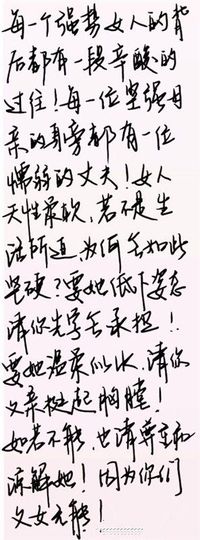 每一个强势女人的背
后都有一段辛酸的
过往！每一位坚强母
亲的身旁都有一位
懦弱的丈夫！女人
天性柔软，若不是生
活所迫，为何会如此
坚硬？要她低下姿态
请你先学会承担！！
要她温柔似水，请你
父亲挺起胸膛！
如若不能，也请尊重和
谅解她！因为你们
父女无能！